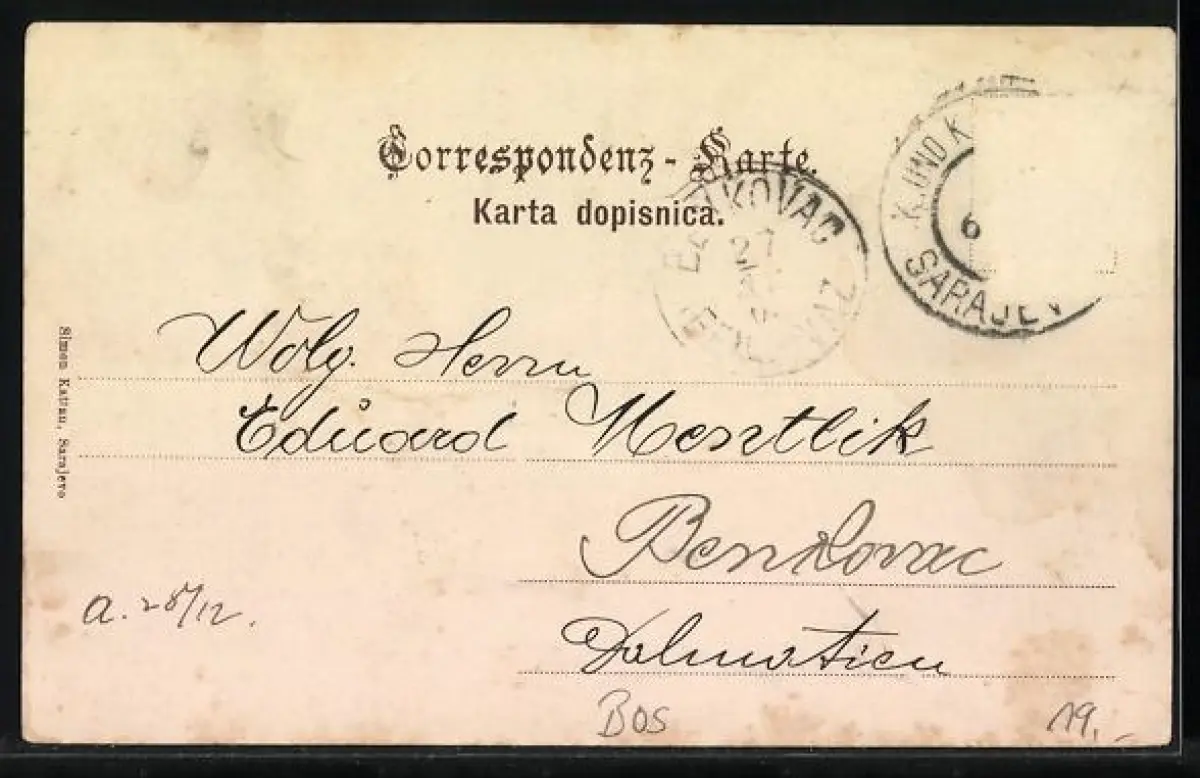 Correspondenz-Karte.
Karta dopisnica.
K. UND K.
6
SARAJEV
KOVAC
27
Simon Kattan, Sarajevo
Wolg. Herrn
Eduard Mentlik
Benkovac
Dalmatien
a. 28/12.
BOS
19.-